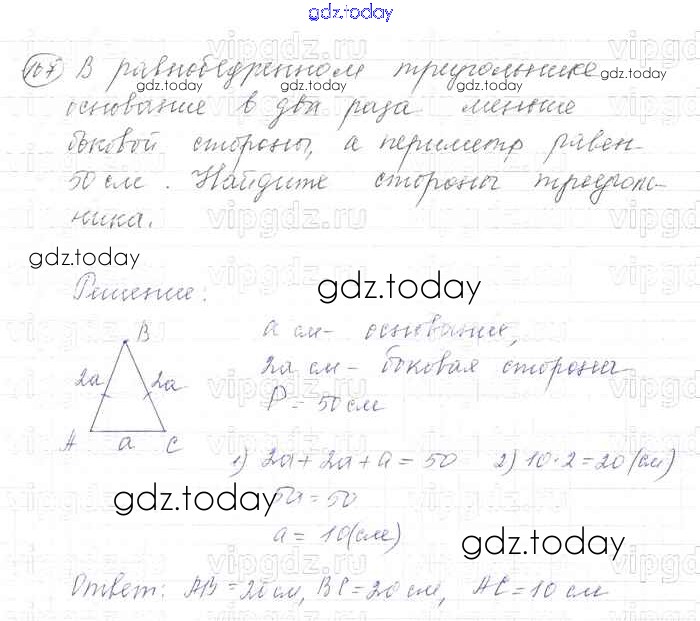 gdz.today
107 В равнобедренном треугольнике
основание в два раза меньше
боковой стороны, а периметр равен
50 см. Найдите стороны треуголь-
ника.
gdz.today
Решение:
gdz.today
B
2a 2a
A a C
a см - основание,
2a см - боковая стороны
P = 50 см
1) 2a + 2a + a = 50 2) 10 · 2 = 20 (см)
5a = 50
a = 10 (см)
gdz.today
gdz.today
Ответ: AB = 20 см, BC = 20 см, AC = 10 см